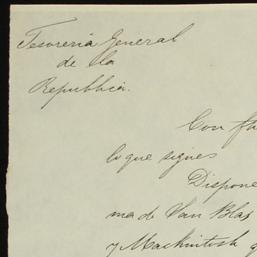 Tesorería General
de la
República.
Con fe
lo que sigue:
Dispone
ma de Van Blas
y Mackintosh q